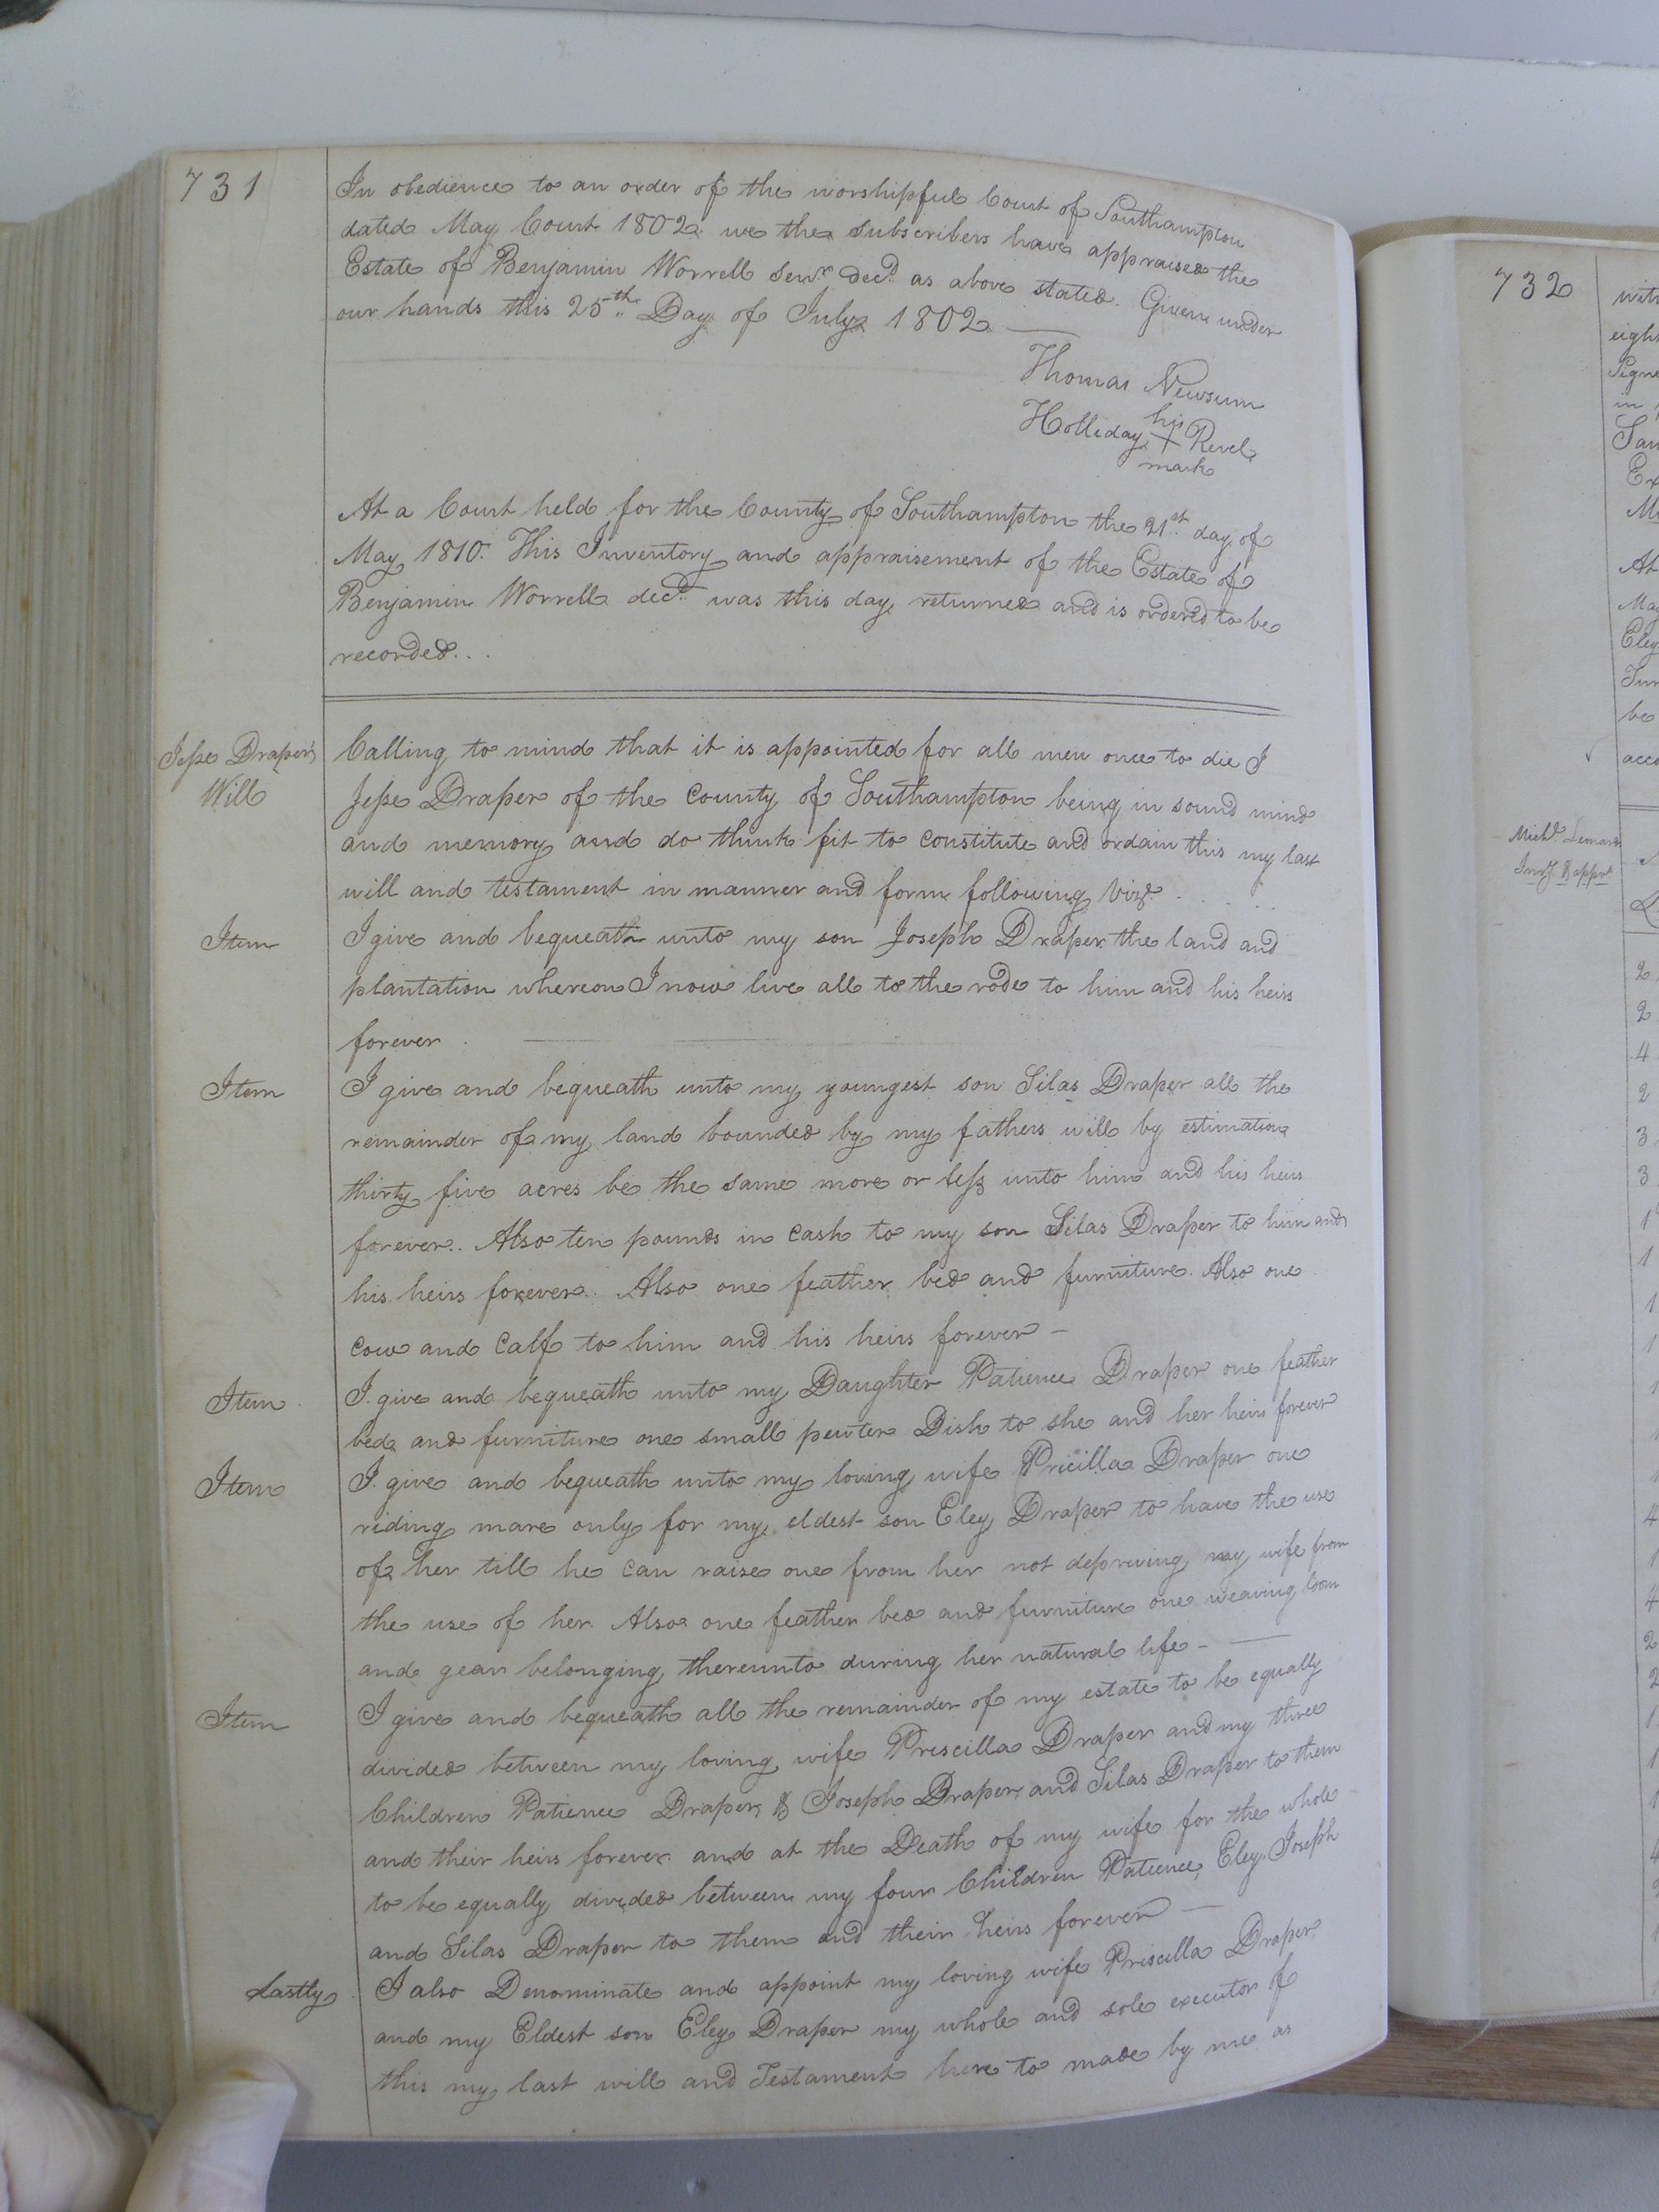 731
In obedience to an order of the worshipful Court of Southampton
dated May Court 1802 we the subscribers have appraised the
Estate of Benjamin Worrell Senr. decd. as above stated. Given under
our hands this 25th. Day of July 1802
Thomas Newsum
his
Holliday X Revel
mark
At a Court held for the County of Southampton the 21st. day of
May 1810. This Inventory and appraisement of the Estate of
Benjamin Worrell decd. was this day returned and is ordered to be
recorded...
Jesse Draper's
Will
Calling to mind that it is appointed for all men once to die I
Jesse Draper of the County of Southampton being in sound mind
and memory and do think fit to constitute and ordain this my last
will and testament in manner and form following Vizt.
Item
I give and bequeath unto my son Joseph Draper the land and
plantation whereon I now live all to the rode to him and his heirs
forever.
Item
I give and bequeath unto my youngest son Silas Draper all the
remainder of my land bounded by my fathers will by estimation
thirty five acres be the same more or less unto him and his heirs
forever.. Also ten pounds in cash to my son Silas Draper to him and
his heirs forever.. Also one feather bed and furniture. Also one
cow and calf to him and his heirs forever -
Item
I give and bequeath unto my Daughter Patience Draper one feather
bed and furniture one small pewter Dish to she and her heirs forever
Item
I give and bequeath unto my loving wife Pricilla Draper one
riding mare only for my eldest son Eley Draper to have the use
of her till he can raise one from her not depriving my wife from
the use of her. Also one feather bed and furniture one weaving loom
and gear belonging thereunto during her natural life -
Item
I give and bequeath all the remainder of my estate to be equally
divided between my loving wife Priscilla Draper and my three
Children Patience Draper & Joseph Draper and Silas Draper to them
and their heirs forever and at the Death of my wife for the whole
to be equally divided between my four Children Patience, Eley Joseph
and Silas Draper to them and their heirs forever -
Lastly
I also Denominate and appoint my loving wife Priscilla Draper
and my Eldest son Eley Draper my whole and sole executor of
this my last will and Testament here to made by me as
732
eigh
Signe
in
At
Eley
be
acco
Invy & appt
2
2
4
2
3
3
1
1
1
1
1
1
1
4
1
4
2
2
1
1
1
4